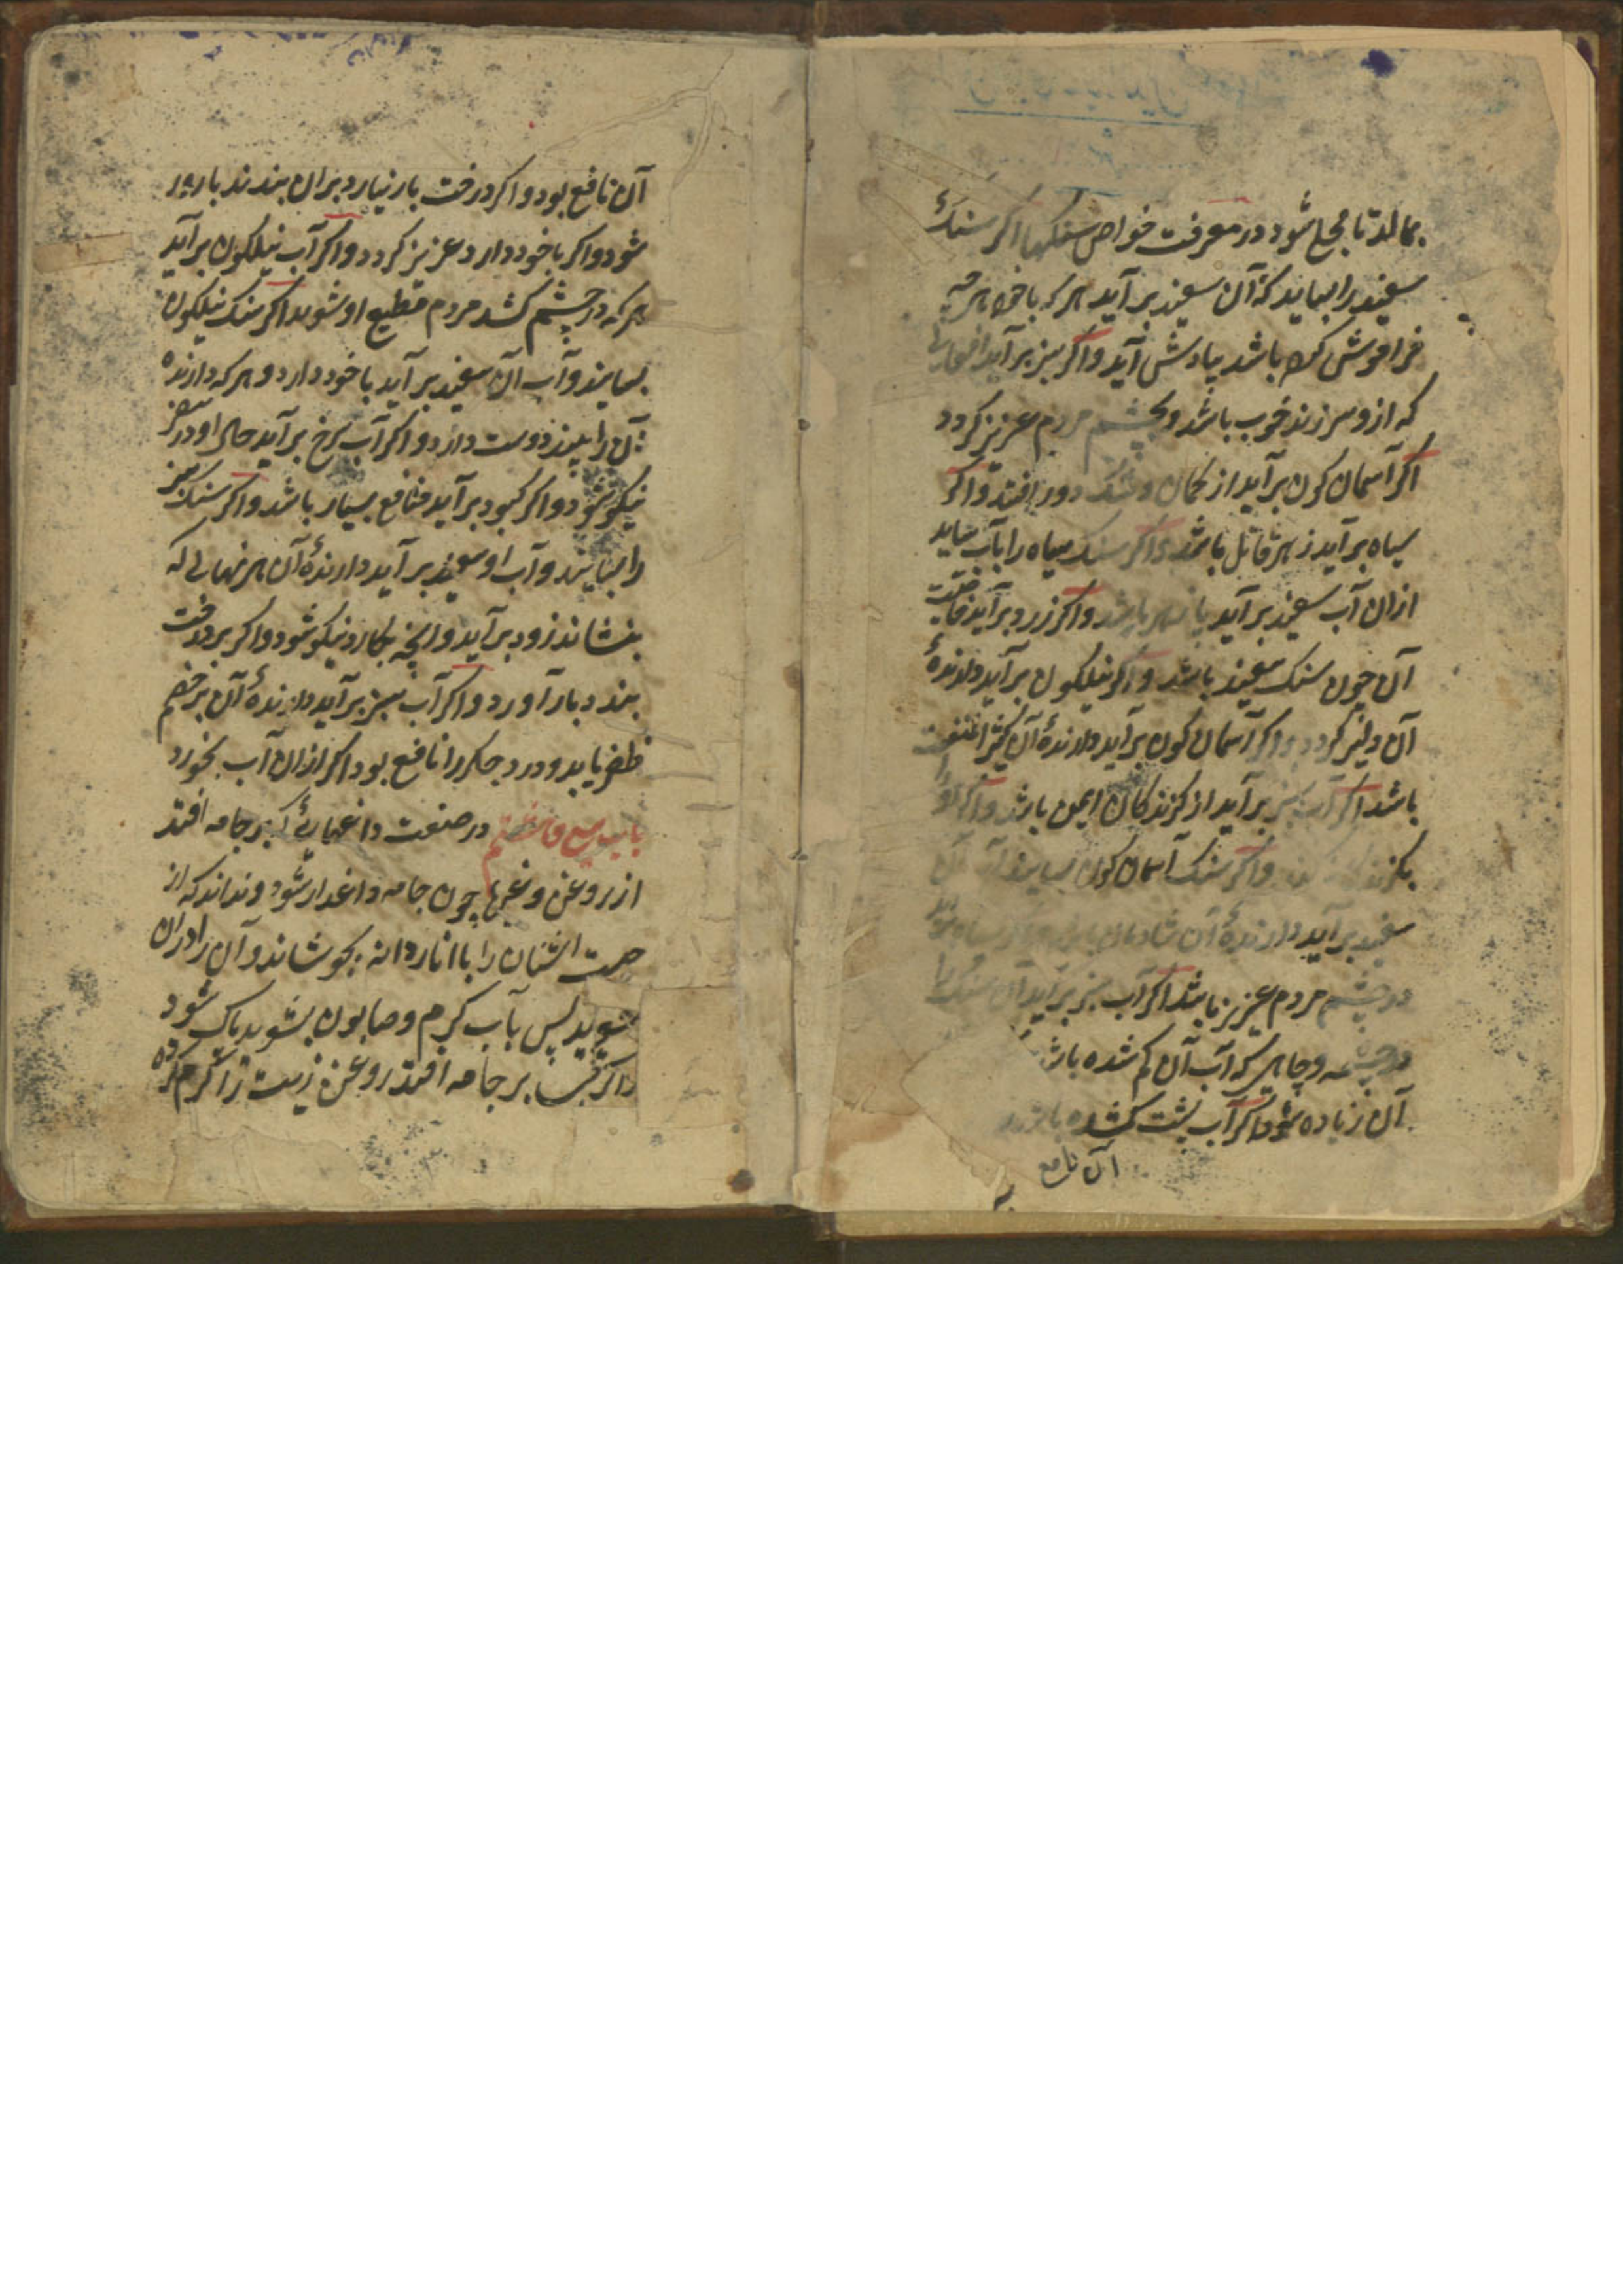 بمالد تا مجلی شود در معرفت خواص سنکها اکر سنک
سفید را بساید که آن سفید برآید هر که با خود هرچه
فراموش کرده باشد بیادش آید و اکر سبز برآید افعالی
که ازو سر زند خوب باشد و بچشم مردم عزیز کردد
اکر آسمان کون برآید از کمان و شک دور افتد و اکر
سیاه برآید زهر قاتل باشد و اکر سنک سیاه را بآب ساید
ازان آب سفید برآید باشد و اکر زرد برآید خاصیت
آن چون سنک سفید باشد و اکر نیلکون برآید دارندهٔ
آن دلیر کردد و اکر آسمان کون برآید دارندهٔ آن
باشد اکر آب سبز برآید از کزندکان ایمن باشد و اکر او را
بکزند و اکر سنک آسمان کون بسایند آب آن
سفید برآید دارندهٔ آن شادمان باشد و اکر سیاه برآید
در چشم مردم عزیز باشد اکر آب سبز برآید آن سنک را
در چشمه و چاهی که آب آن کم شده باشد
آن زیاده شود اکر آب
آن نافع
آن نافع بود و اکر درخت بار نیارد بران بندند بارور
شود و اکر با خود دارد عزیز کردد و اکر آب نیلکون برآید
هر که در چشم کشد مردم مطیع او شوند اکر سنک نیلکون
بسایند و آب آن سفید برآید با خود دارد و هر که دارنده
آن را بیند دوست دارد و اکر آب سرخ برآید حال او در سفر
نیکو شود و اکر کبود برآید منافع بسیار باشد و اکر سنک سبز
را بسایند و آب او سفید برآید دارندهٔ آن هر نهالی که
بنشاند زود برآید و انچه بکارد نیکو شود و اکر بر درخت
بندد بار آورد و اکر آب سبز برآید دارندهٔ آن بر خصم
ظفر یابد و درد جکر را نافع بود اکر ازان آب بخورد
باب در صنعت داغهائی که بر جامه افتد
از روغن و غیرها چون جامه داغدار شود و نداند که از
چیست اشنان را با اناردانه بجوشاند و آن را دران
شوید پس بآب کرم و صابون بشوید پاک شود
و اکر بر جامه افتد روغن زیت را کرم کرده